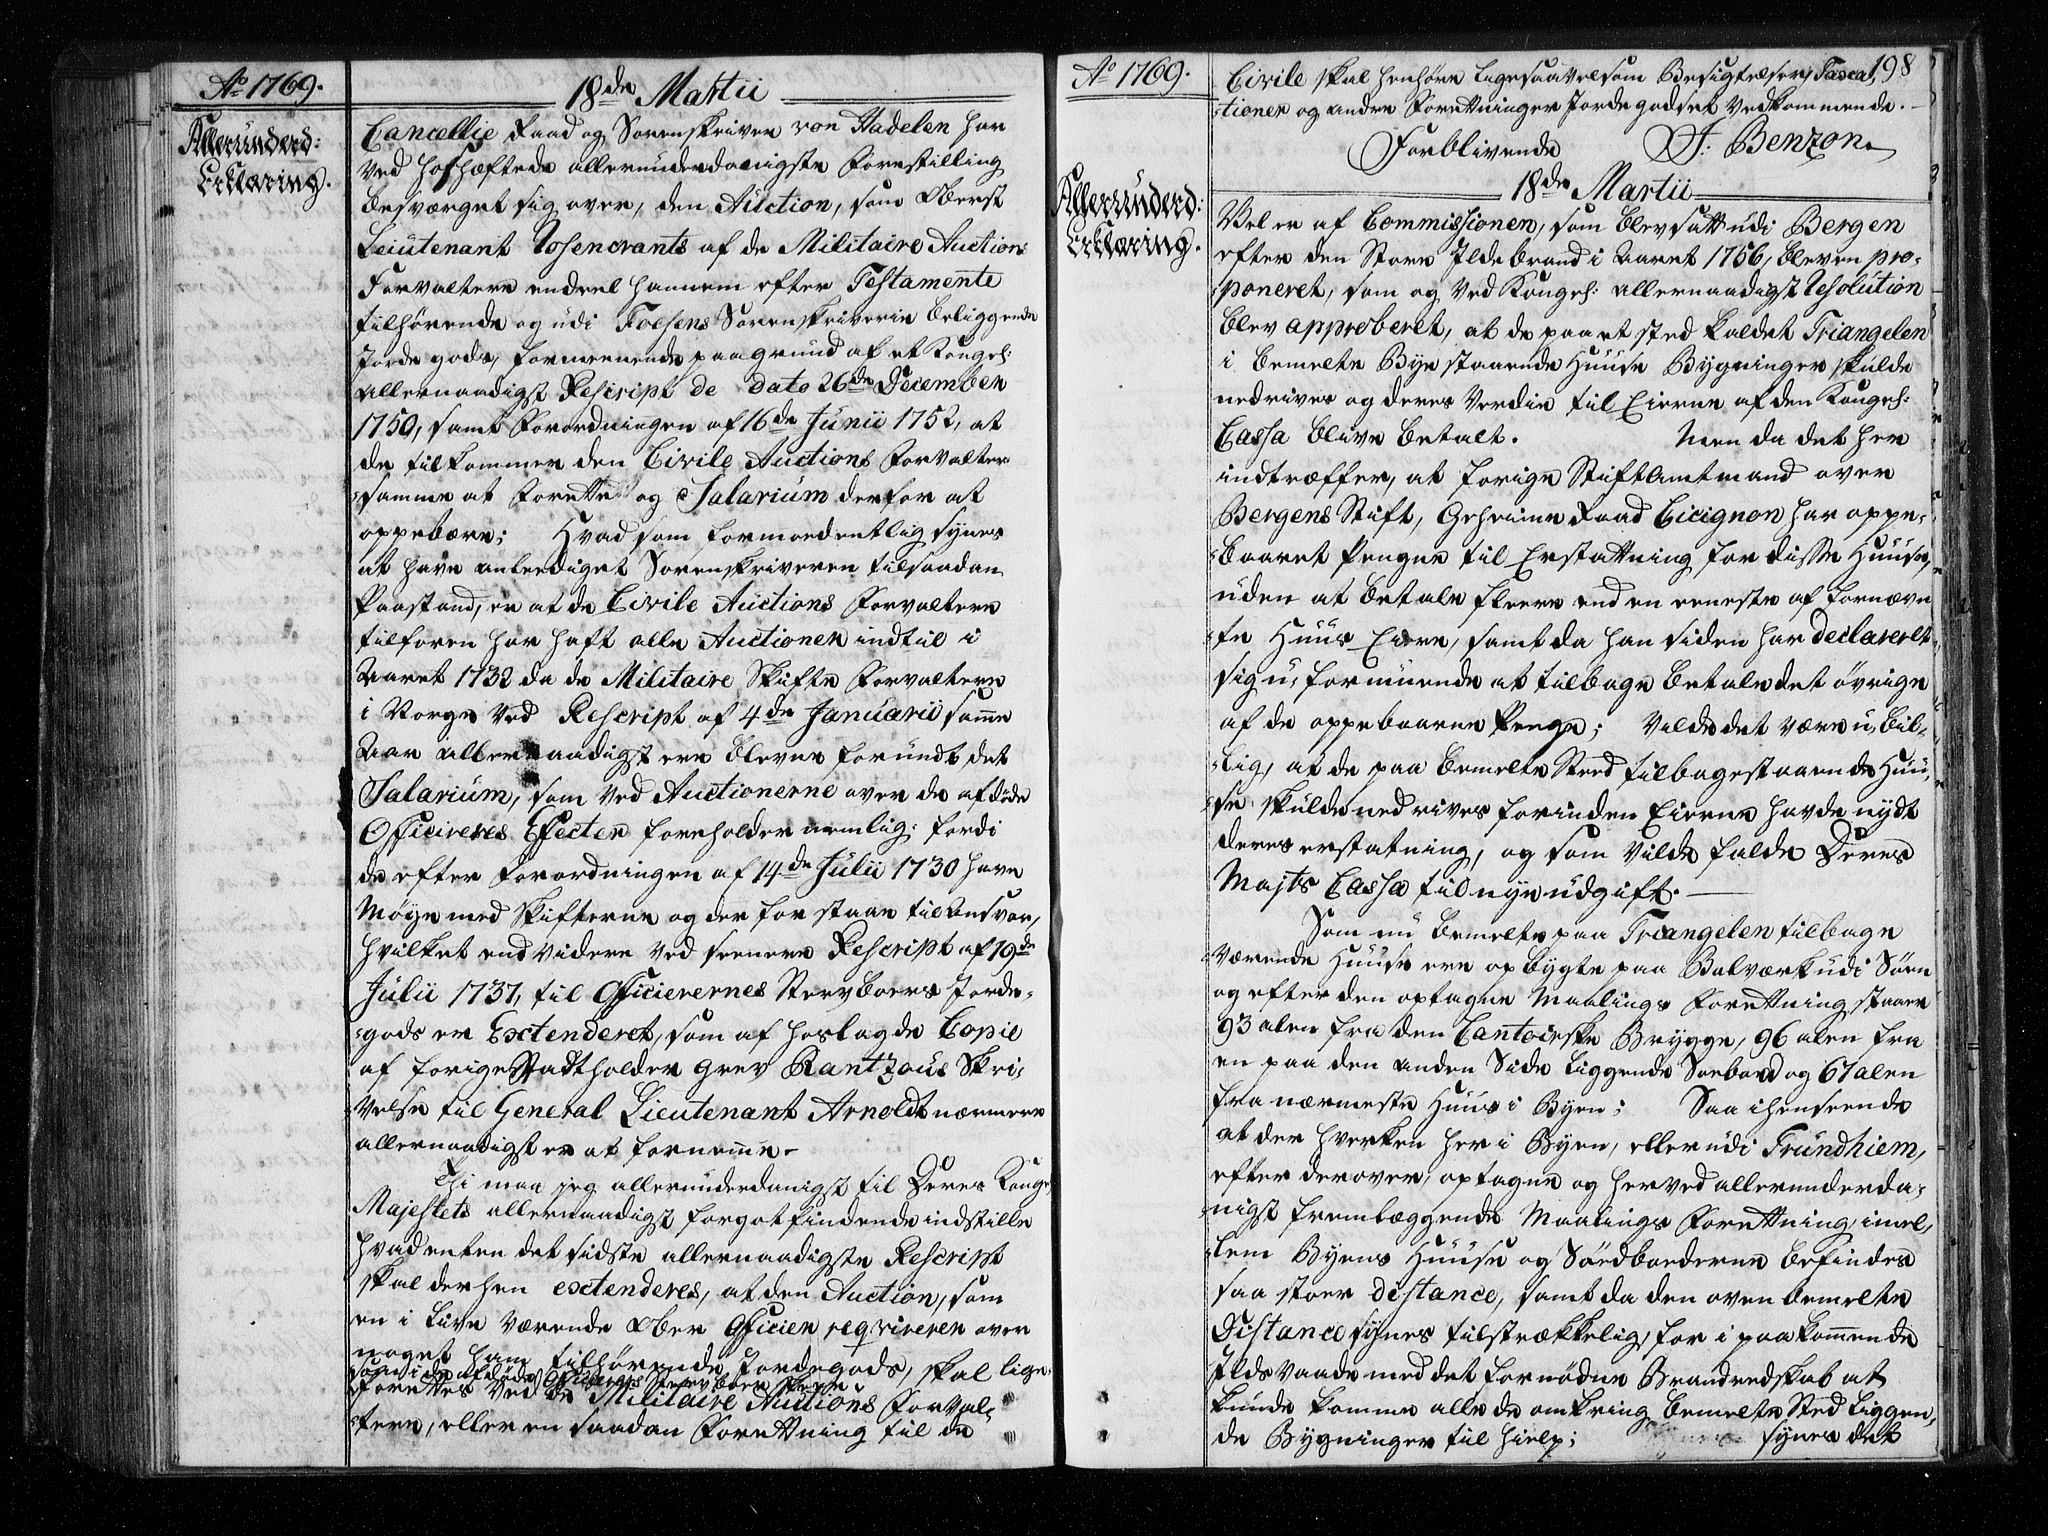 Ao 1769.
18de Martii
Allerunderd:
Erklæring.
Cancellie Raad og Sorenskriver von Hadelen har
ved hoshæftede allerunderdanigste Forestilling
besværget sig over, den Auction, som Oberst
Leiutenant Rosencrants af de Militaire Auctions
Forvaltere endeel hannem efter Testamente
tilhørende og udi Foesens Sorenskriverie beliggende
Jorde gods, formeenende paa grund af et Kongel:
allernaadigst Rescript de dato 26de December
1750, samt Forordningen af 16de Junii 1752, at
de tilkommer den Civile Auctions Forvalter
samme at forrette og Salarium derfor at
oppebære; Hvad som formodentlig synes
at have anlediget Sorenskriveren til saadan
Paastand, er at de Civile Auctions Forvaltere
tilforen har haft alle Auctioner indtil i
Aaret 1732 da de Militaire Skifte Forvaltere
i Norge ved Rescript af 4de Januarii samme
Aar allernaadigst ere blevne forundt det
Salarium, som ved Auctionerne over de afdøde
Officereres Effecter foreholder nemlig: fordi
de efter Forordningen af 14de Julii 1730 have
Møye med Skifterne og derfor staae til Ansvar,
hvilket end videre ved seenere Rescript af 19de
Julii 1737, til Officierernes Stervboers Jorde-
gods er Exctenderet, som af hoslagde Copie
af forige Stadtholder Grev Rantzous Skri-
velse til General Lieutenant Arnoldt nærmere
allernaadigst er at fornemme.
Thi maa jeg allerunderdanigst til Deres Konge
Majestets allernaadigst forgotfindende indstille
hvad enten det sidste allernaadigste Rescript
skal derhen exctenderes, at den Auction, som
en i Live værende Ober Officier reqvirerer over
noget ham tilhørende Jordegods, skal lige-
som i de afdøde Officiers Stervboer skeer
forrettes ved de Militaire Auctions Forval-
tere, eller en saadan Forrettning til de
Ao 1769.
198
Civile skal henhøre ligesaavelsom Besigtelser, Taxca-
tioner og andre Forrettninger Jordegodset vedkommende.
Forblivende J: Benzon.
18de Martii
Allerunderd:
Erklæring.
Vel er af Commissionen, som blev satt udi Bergen
efter den Store Ildebrand i Aaret 1756, bleven pro-
poneret, som og ved Kongel: allernaadigst Resolution
blev approberet, at de paa et sted kaldet Triangelen
i bemelte Bye staaende Huuse Bygninger skulde
nedrives og deres Verdie til Eierne af den Kongel:
Cassa blive betalt. Men da det her
indtræffer, at forige Stiftamtmand over
Bergens Stift, Geheime Raad Cicignon har oppe-
baaret Penge til Erstattning for disse Huuse,
uden at betale fleere end en eeneste af fornævn-
te Huus Eiere, samt da han siden har declareret
sig u-formuende at tilbage betale det øvrige
af de oppebaarne Penge; Vilde det være u-bil-
lig, at de paa bemelte Sted tilbagestaaende Huu-
se skulde nedrives forinden Eierne havde nydt
deres erstatning, og som vilde falde Deres
Majts Cassa til nye udgift.
Som nu bemelte paa Triangelen tilbage
værende Huuse ere opbygte paa Bolværk udi Søen
og efter den optagne Maalings Forrettning staaer
93 alen fra den Cantoirske Brygge, 96 alen fra
en paa den anden Side liggende Søeboed og 67 alen
fra nærmeste Huus i Byen; Saa i henseende
at der hverken her i Byen, eller udi Trundhiem,
efter derover, optagne og herved allerunderda-
nigst fremlæggende Maalings Forrettning imel-
lem Byens Huuse og Søedboederne befindes
saa stoer distance, samt da den oven bemelte
Distance synes tilstrækkelig, for i paakommende
Ilds Vaade med det fornødne Brandredskab at
kunde komme alle de omkring bemelte Sted liggen-
de Bygninger til hielp; synes det